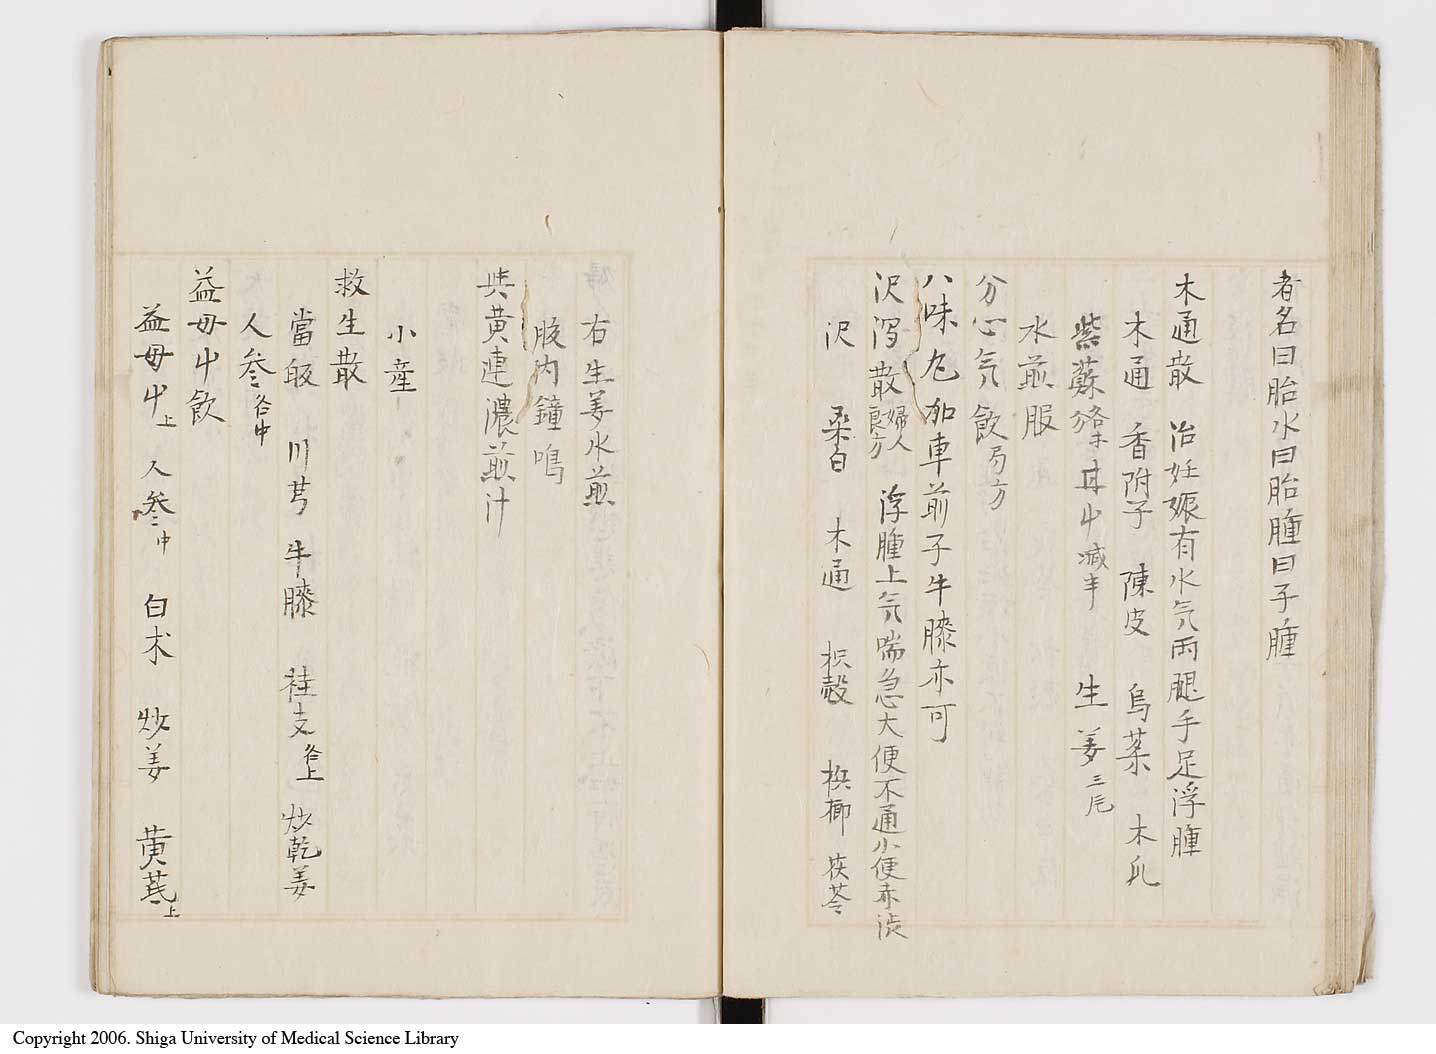 者名曰胎水曰胎腫曰子腫
木通散 治妊娠有水气両腿手足浮腫
木通 香附子 陳皮 烏薬 木瓜
紫蘇各等分 甘中減半 生姜三片
水煎服
分心气飲局方
八味丸加車前子牛膝亦可
沢瀉散婦人良方 浮腫上气喘急大便不通小便赤渋
沢 桑白 木通 枳殻 梹榔 茯苓
右生姜水煎
腹内鐘鳴
黄連濃煎汁
小産
救生散
當皈 川芎 牛膝 桂支各上 炒乾姜
人参各中
益母屮飲
益母屮上 人参中 白朮 炒姜 黄芪上
Copyright 2006. Shiga University of Medical Science Library